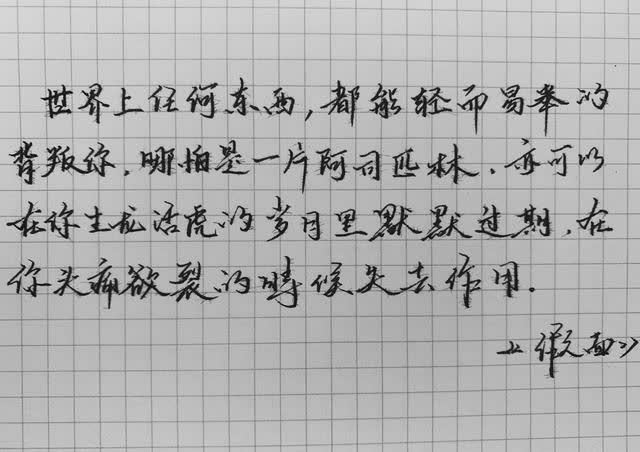 世界上任何东西,都能轻而易举的
背叛你.哪怕是一片阿司匹林.亦可以
在你生龙活虎的岁月里默默过期.在
你头痛欲裂的時候失去作用.
《假面》